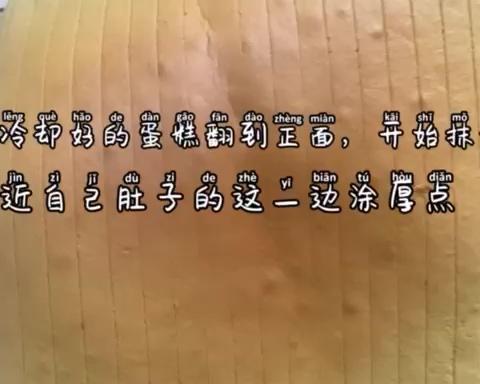 lěng què hǎo de dàn gāo fān dào zhèng miàn kāi shǐ mǒ
冷却好的蛋糕翻到正面，开始抹
jìn zì jǐ dù zi de zhè yī biān tú hòu diǎn
近自己肚子的这一边涂厚点